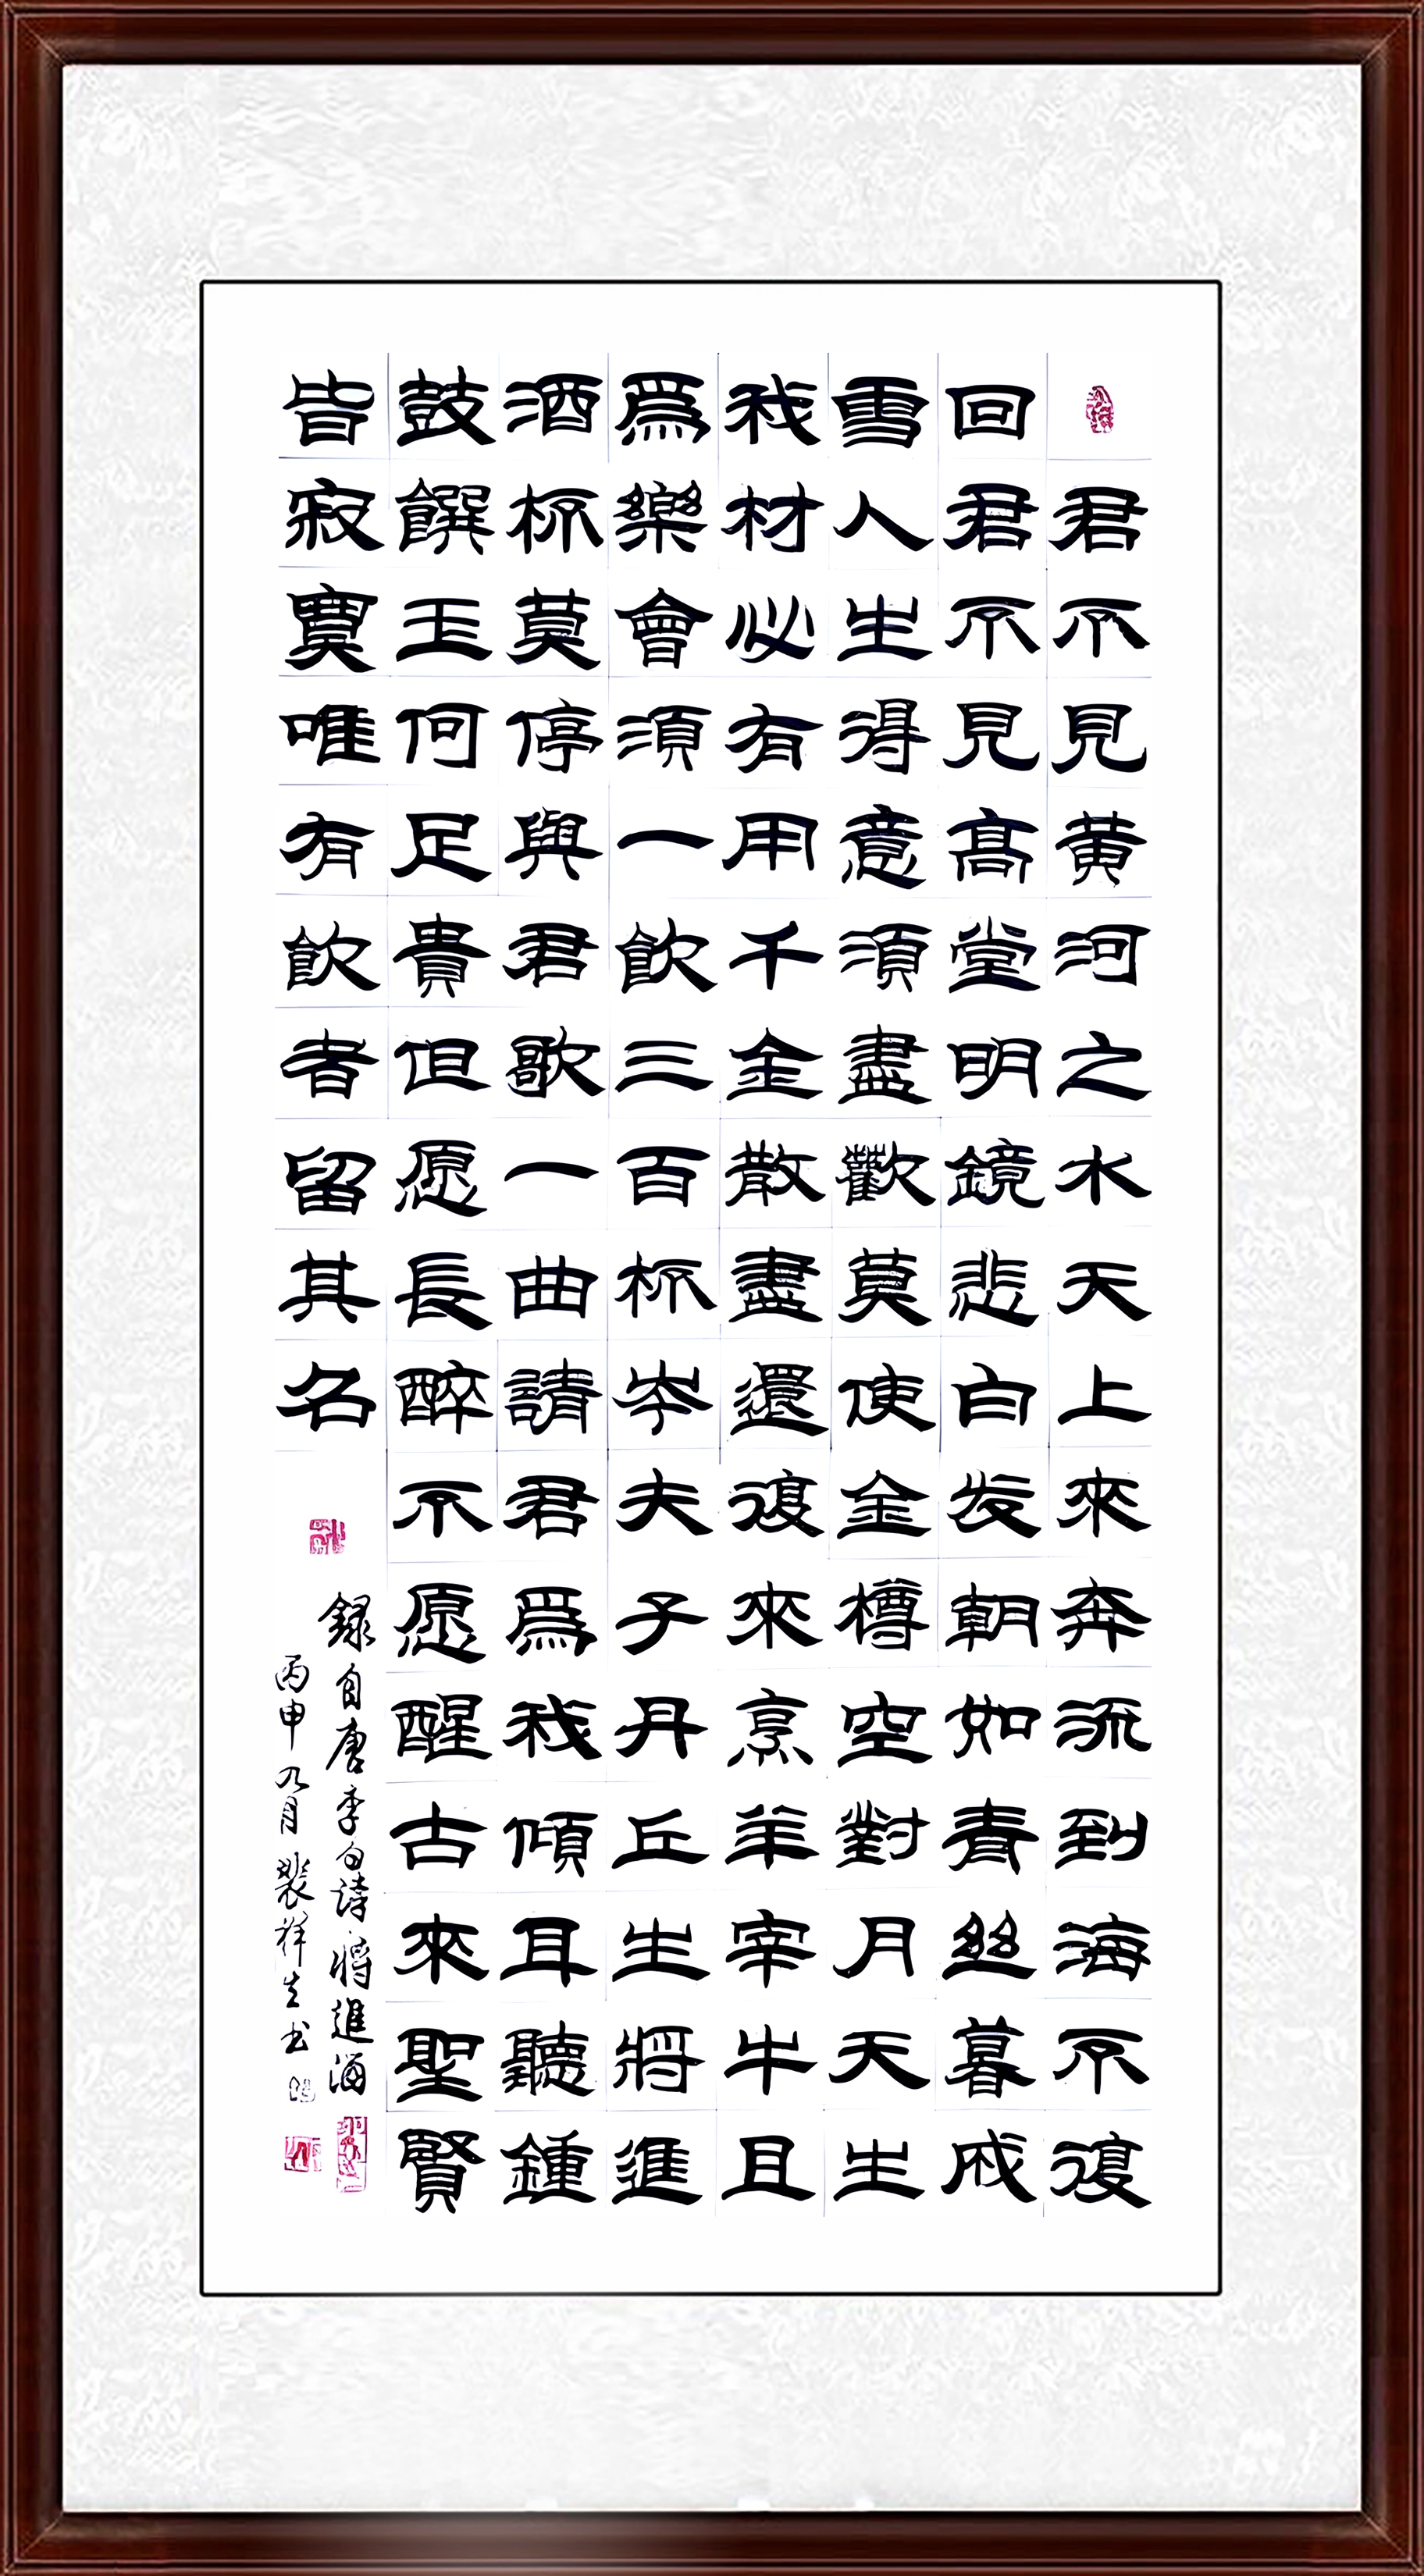 君不見黃河之水天上來奔流到海不復
回君不見高堂明鏡悲白发朝如青絲暮成
雪人生得意須盡歡莫使金樽空對月天生
我材必有用千金散盡還復來烹羊宰牛且
爲樂會須一飲三百杯岑夫子丹丘生將進
酒杯莫停與君歌一曲請君爲我傾耳聽鍾
鼓饌玉何足貴但愿長醉不愿醒古來聖賢
皆寂寞唯有飲者留其名
録自唐李白詩將進酒
丙申九月裴祥生书